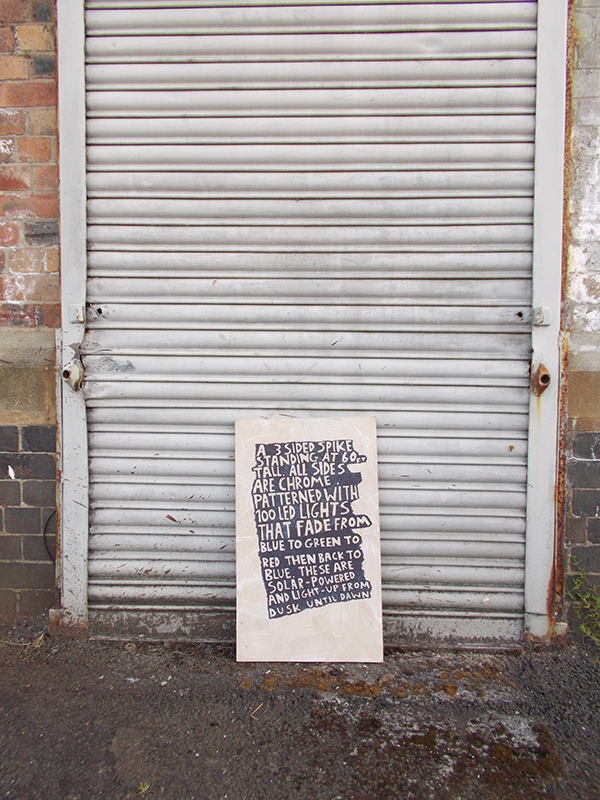 A 3 SIDED SPIKE
STANDING AT 60FT
TALL. ALL SIDES
ARE CHROME
PATTERNED WITH
100 LED LIGHTS
THAT FADE FROM
BLUE TO GREEN TO
RED THEN BACK TO
BLUE. THESE ARE
SOLAR-POWERED
AND LIGHT-UP FROM
DUSK UNTIL DAWN